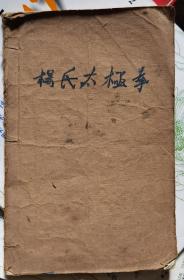 楊氏太極拳